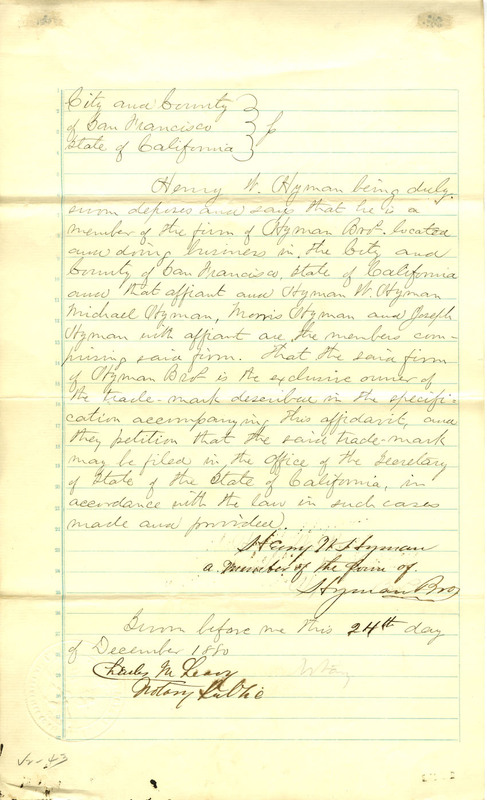 City and County
of San Francisco
State of California
Henry W. Hyman being duly
sworn deposes and says that he is a
member of the firm of Hyman Bros. located
and doing business in the City and
County of San Francisco, State of California
and that affiant and Hyman W. Hyman
Michael Hyman, Morris Hyman and Joseph
Hyman with affiant are the members com-
prising said firm. That the said firm
of Hyman Bros is the exclusive owner of
the trade-mark described in the specifi-
cation accompanying this affidavit, and
they petition that the said trade-mark
may be filed in the Office of the Secretary
of State of the State of California, in
accordance with the law in such cases
made and provided.
Henry W Hyman
a member of the firm of
Hyman Bros
Sworn before me this 24th day
of December 1880
Charles M Leavy
Notary Public